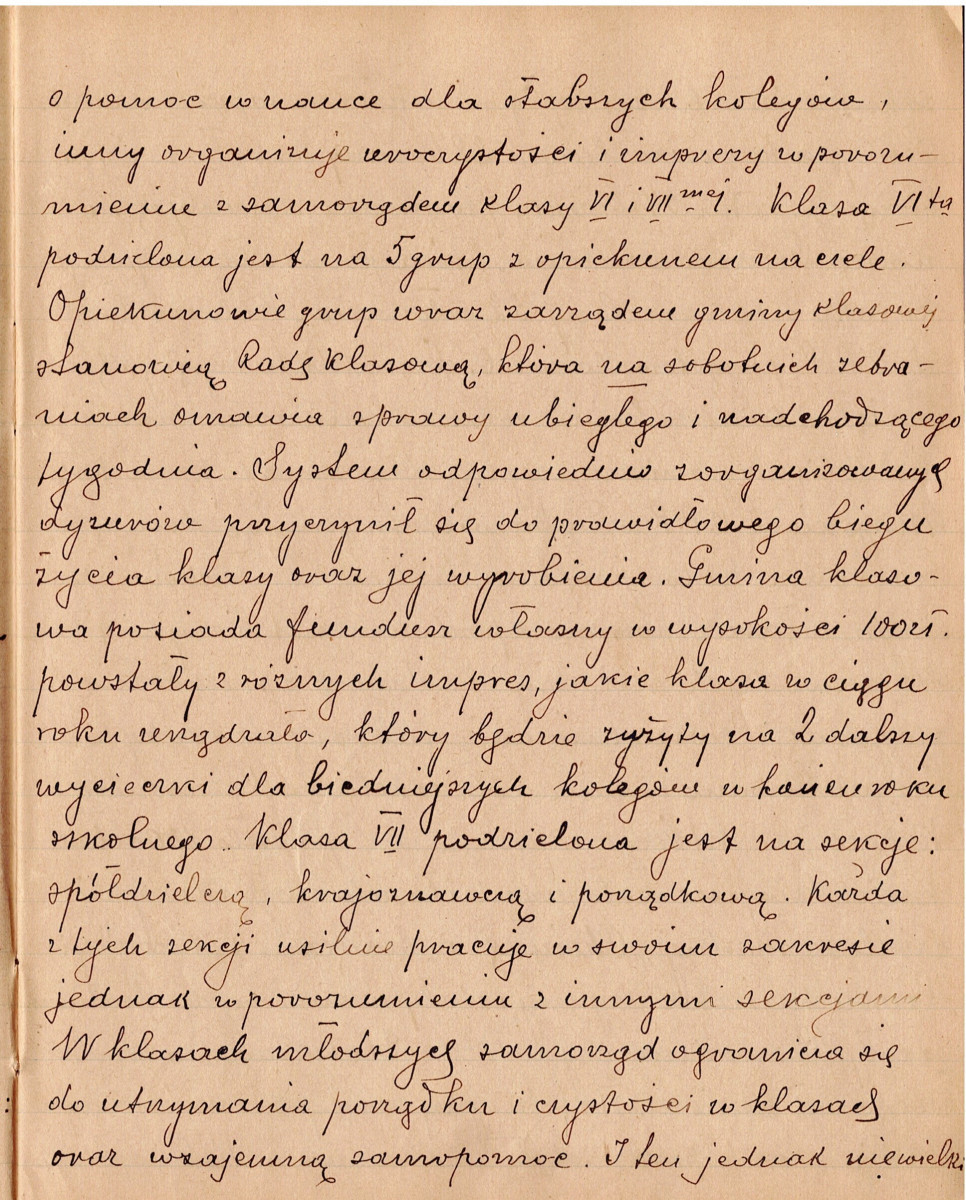 o pomoc w nauce dla słabszych kolegów,
inny organizuje uroczystości i imprezy w porozu-
mieniu z samorządem klasy VI i VII mej. Klasa VI ta
podzielona jest na 5 grup z opiekunem na czele.
Opiekunowie grup wraz zarządem gminy klasowej
stanowią Radę Klasową, która na sobotnich zebra-
niach omawia sprawy ubiegłego i nadchodzącego
tygodnia. System odpowiednio zorganizowanych
dyżurów przyczynił się do prawidłowego biegu
życia klasy oraz jej wyrobienia. Gmina klaso-
wa posiada fundusz własny w wysokości 100 zł.
powstały z różnych imprez, jakie klasa w ciągu
roku urządzała, który będzie zużyty na 2 dalszy
wycieczki dla biedniejszych kolegów w końcu roku
szkolnego. Klasa VII podzielona jest na sekcje:
spółdzielczą, krajoznawczą i porządkową. Każda
z tych sekcji usilnie pracuje w swoim zakresie
jednak w porozumieniu z innymi sekcjami
W klasach młodszych samorząd ogranicza się
do utrzymania porządku i czystości w klasach
oraz wzajemną samopomoc. I ten jednak niewielki